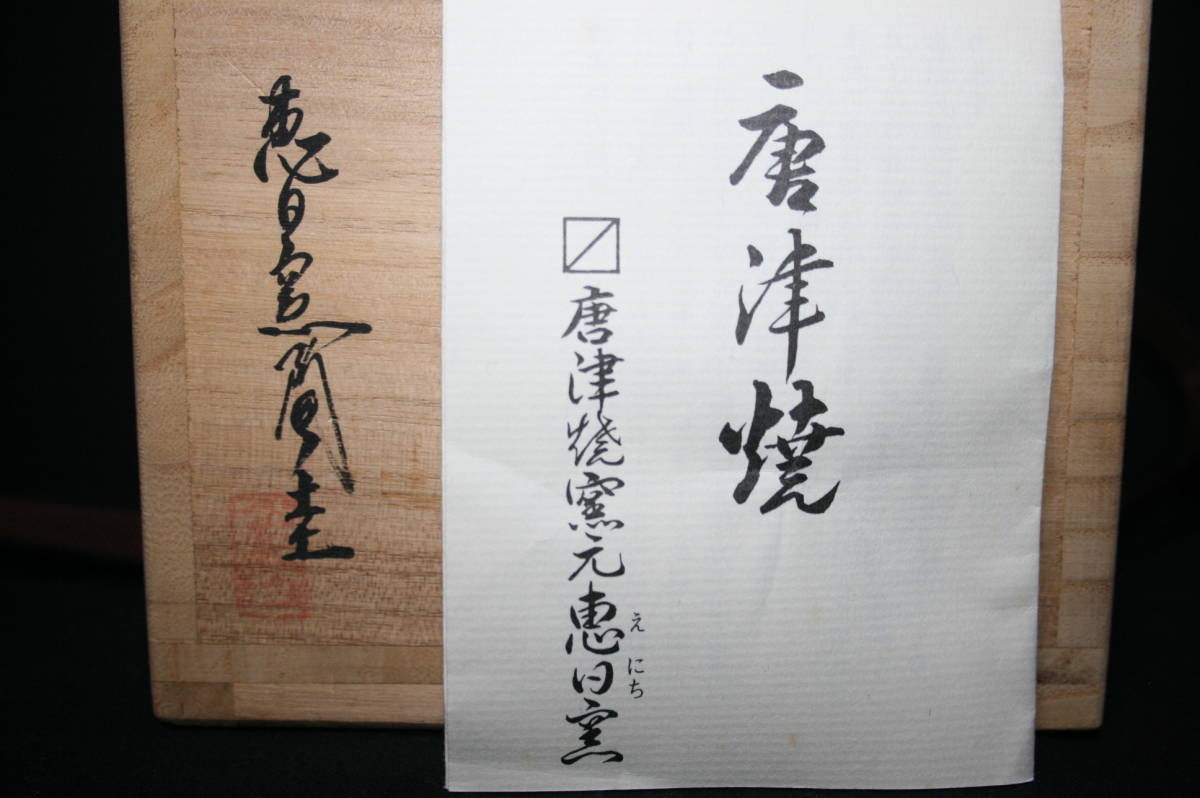 唐津焼
唐津焼窯元恵日窯
えにち
恵日窯
圭